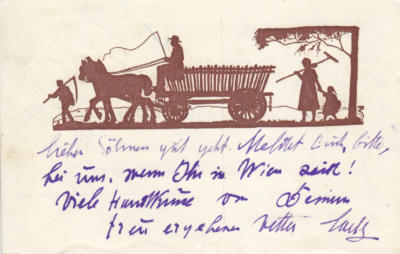 lieben Söhnen gut geht. Meldet Euch, bitte,
bei uns, wenn Ihr in Wien seid!
Viele Handküsse von Deinem
treu ergebenen Vetter